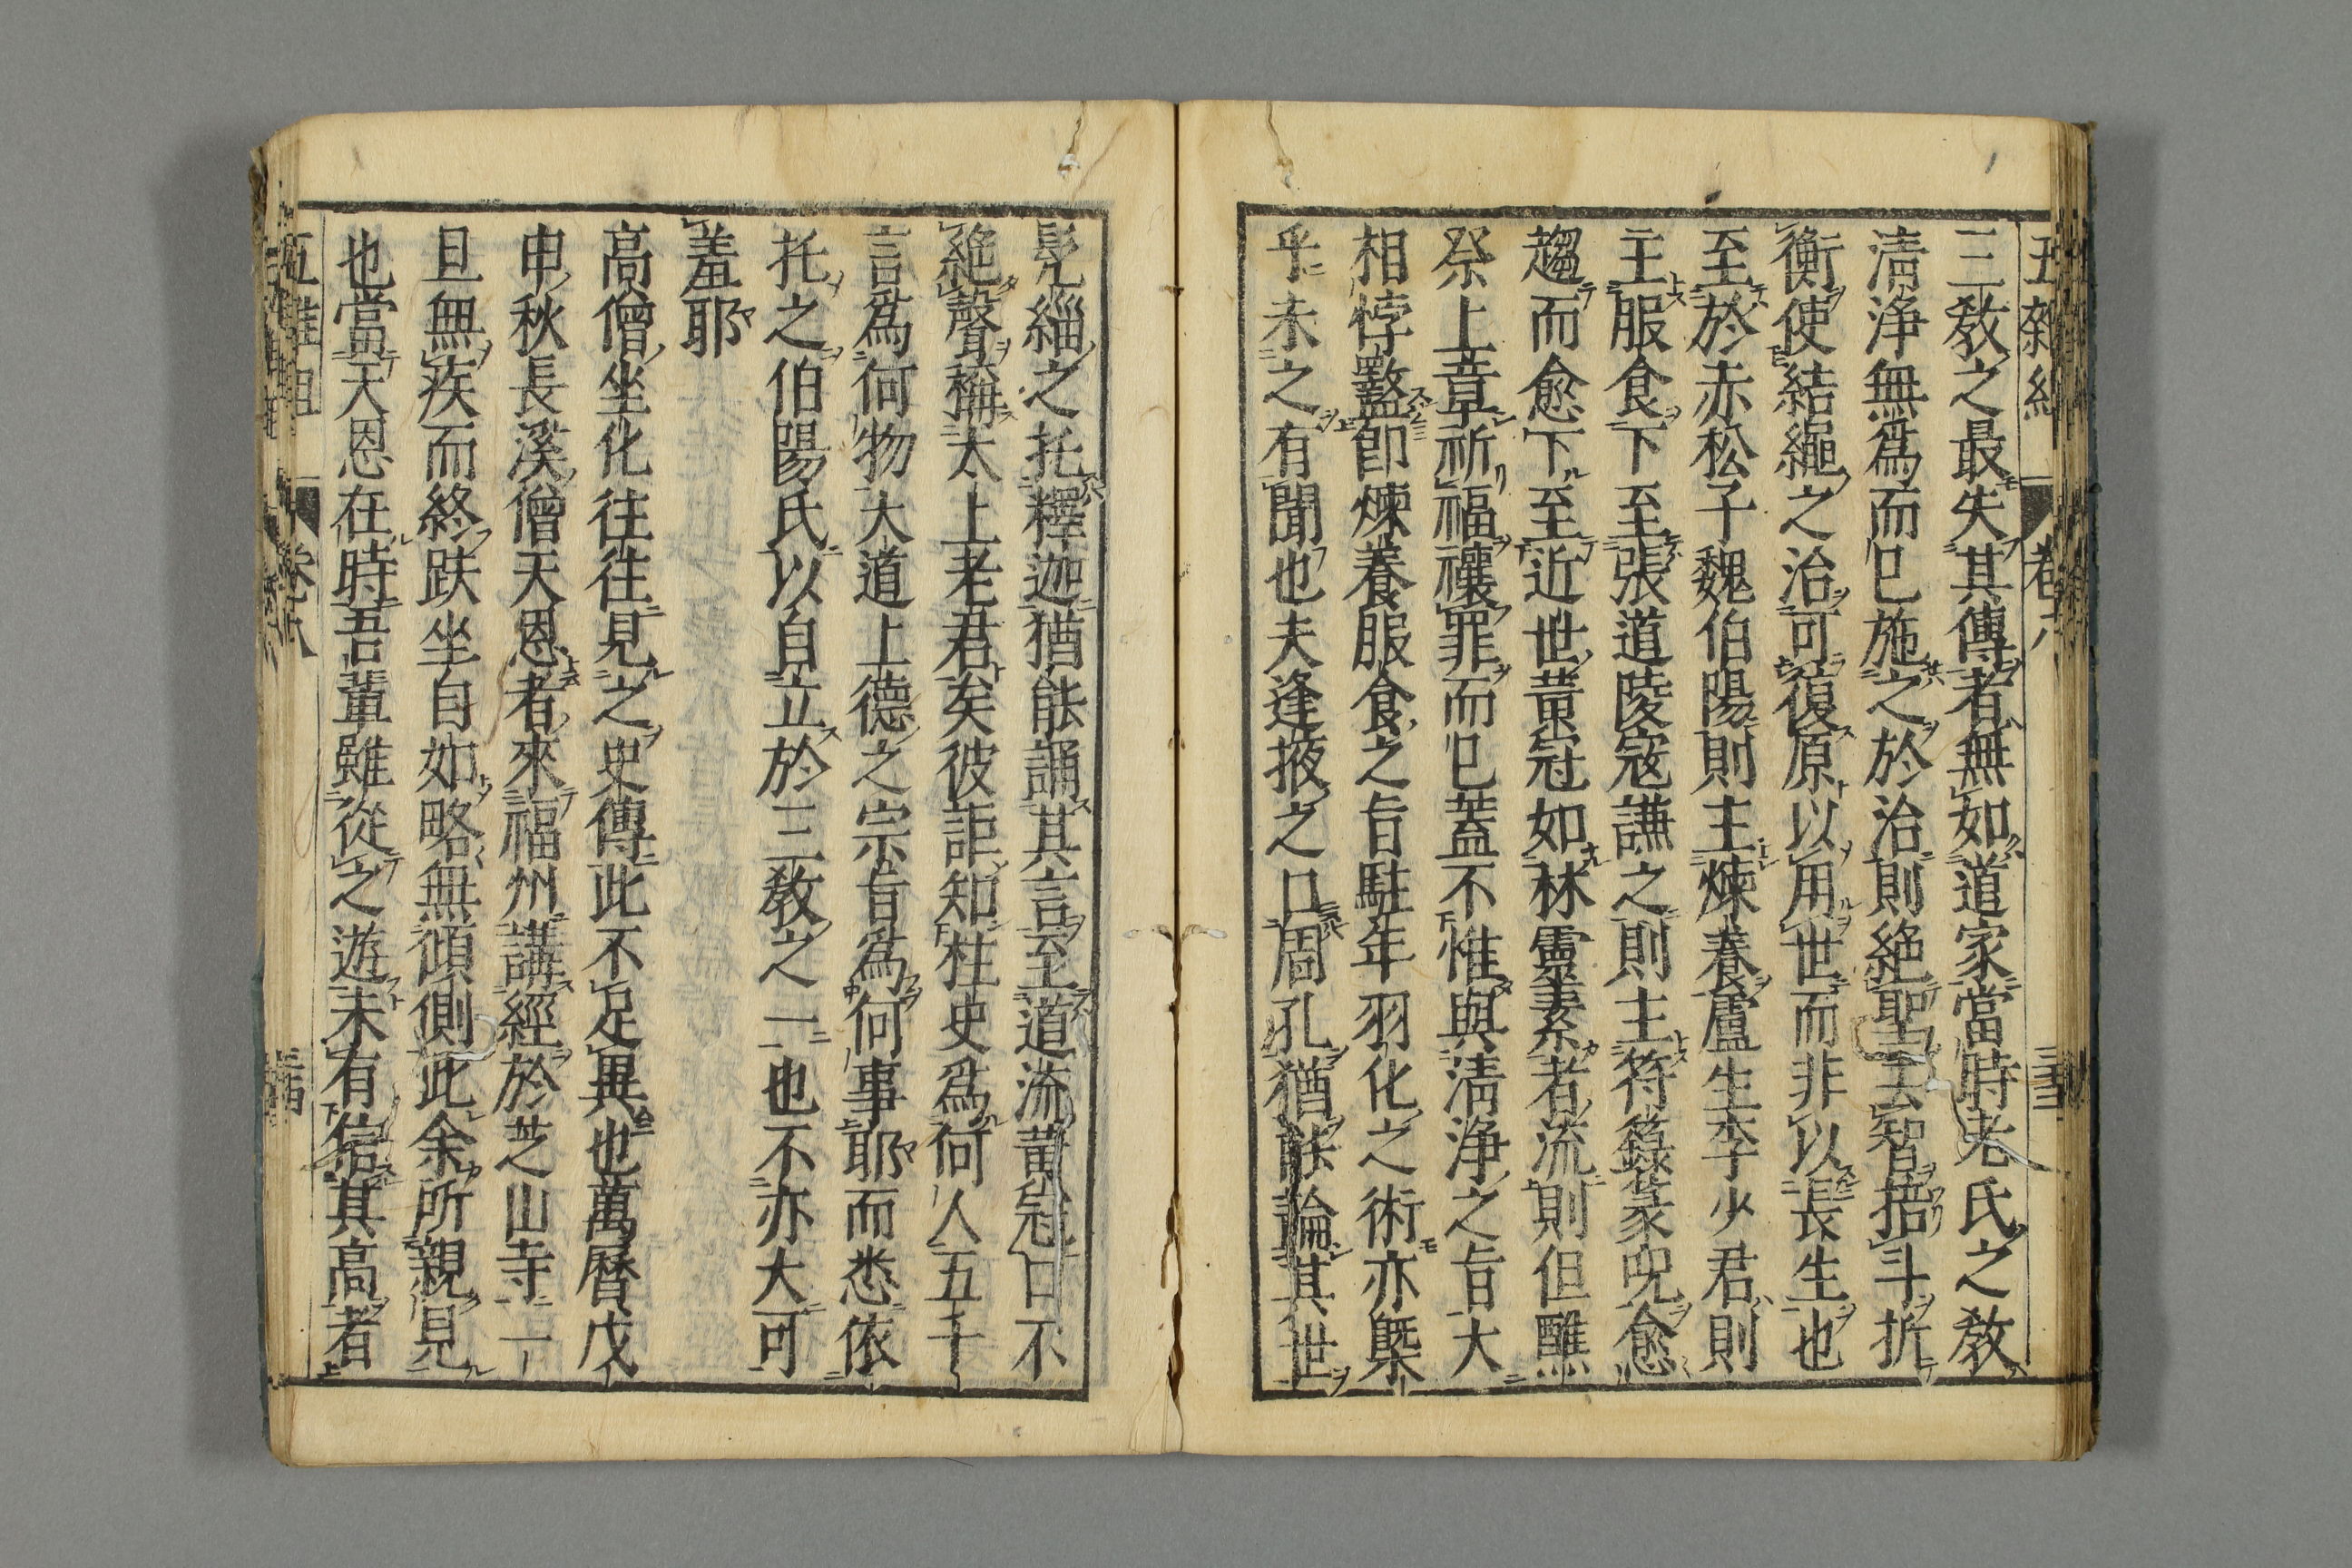 五雜組 卷八
三教之最失其傳者無如道家當時老氏之教
清浄無爲而已施之於治則絶聖去智掊斗折
衡使結繩之治可復原以用世而非以長生也
至於赤松子魏伯陽則主煉養盧生李少君則
主服食下至張道陵寇謙之則主符籙篆呪愈
趨而愈下至近世黄冠如林靈素者流則但醮
祭上章祈福禳罪而已蓋不惟與清浄之旨大
相悖盭即煉養服食之旨駐年羽化之術亦槩
乎未之有聞也夫逢掖之口周孔猶能論其世
髠緇之托釋迦猶能誦其言至道流黄冠口不
絶聲稱太上老君矣彼詎知柱史爲何人五千
言爲何物大道上德之宗旨爲何事耶而悉依
托之伯陽氏以自立於三教之一也不亦大可
羞耶
高僧坐化往往見之史傳此不足異也萬曆戊
申秋長溪僧天恩者來福州講經於芝山寺一
旦無疾而終趺坐自如略無傾側此余所親見
也當天恩在時吾輩雖從之遊未有信其高者
五雜組 卷八